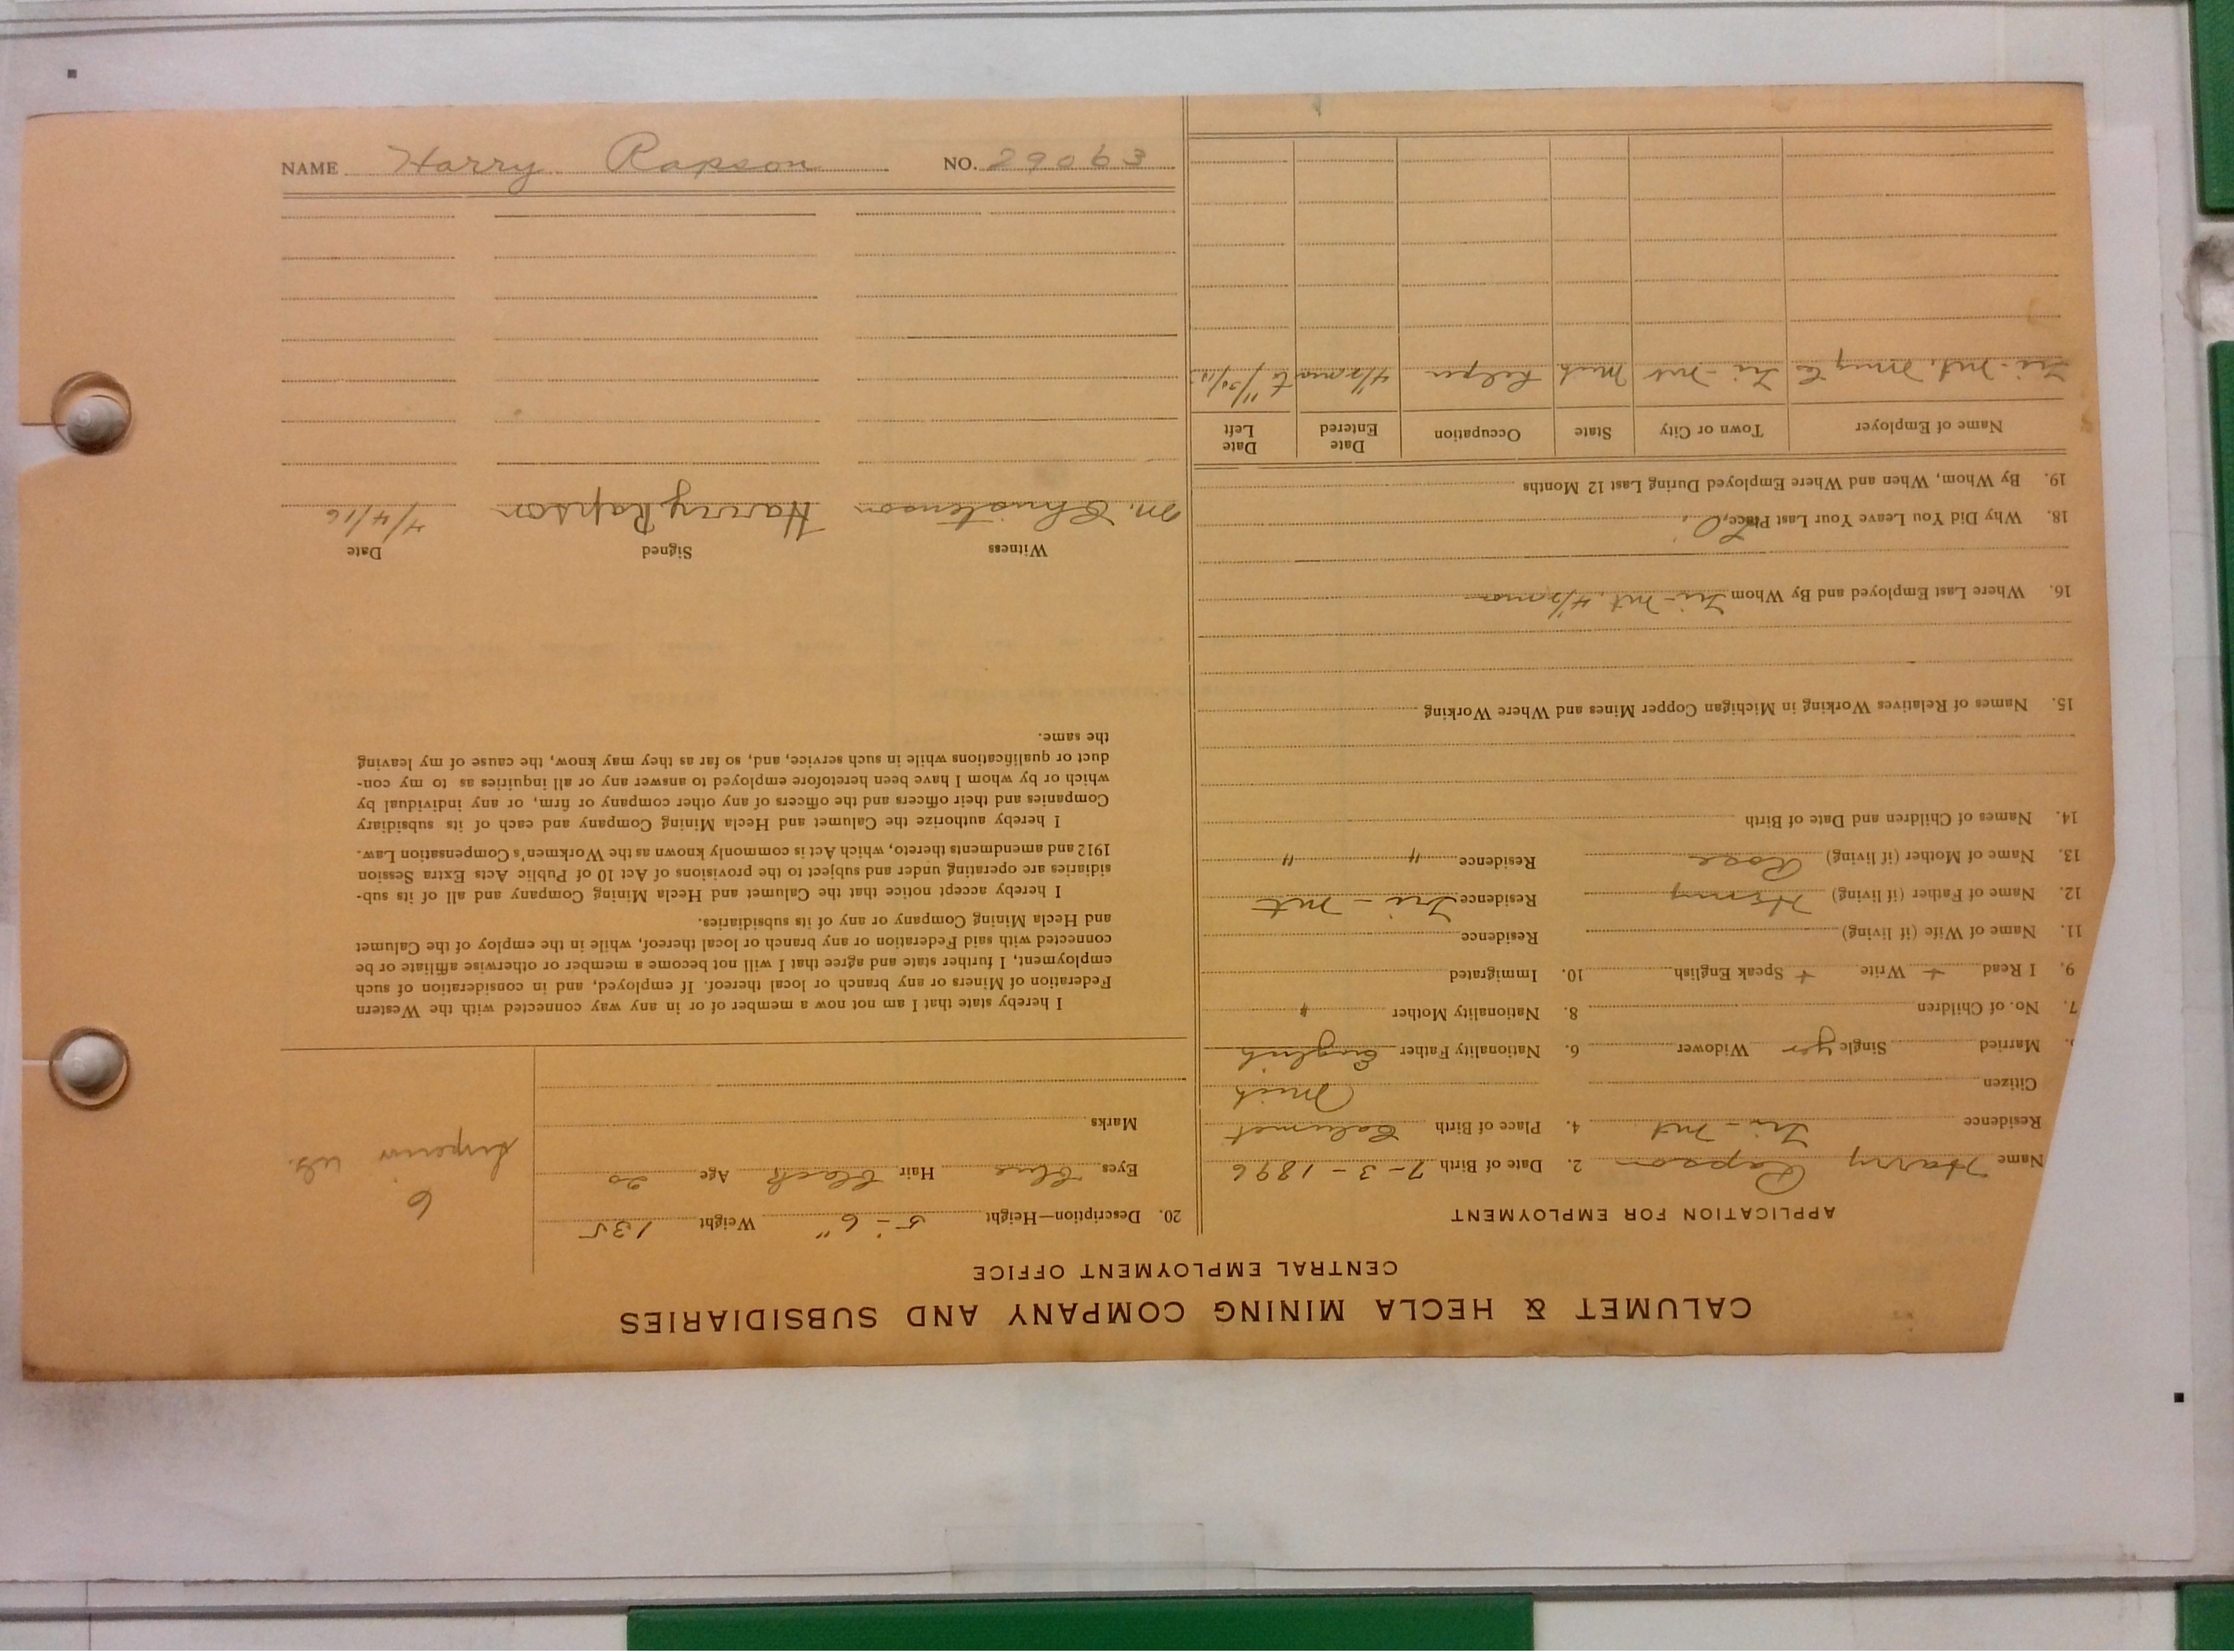 CALUMET & HECLA MINING COMPANY AND SUBSIDIARIES
CENTRAL EMPLOYMENT OFFICE
APPLICATION FOR EMPLOYMENT
Name Harry Rapson 2. Date of Birth 7-3-1896
Residence Tri-Mt 4. Place of Birth Calumet
Citizen Mich
Married Single yes Widower 6. Nationality Father English
7. No. of Children 8. Nationality Mother "
9. I Read + Write + Speak English 10. Immigrated
11. Name of Wife (if living) Residence
12. Name of Father (if living) Henry Residence Tri-Mt
13. Name of Mother (if living) Rose Residence " "
14. Names of Children and Date of Birth
15. Names of Relatives Working in Michigan Copper Mines and Where Working
16. Where Last Employed and By Whom Tri-Mt. 4/2 mos
18. Why Did You Leave Your Last Place,
19. By Whom, When and Where Employed During Last 12 Months
Name of Employer Town or City State Occupation Date Entered Date Left
Tri-Mt. Mng Co Tri-Mt Mich helper 4/2 mos to
20. Description—Height 5'-6" Weight 135
Eyes blue Hair black Age 20
Marks
6
Superior
I hereby state that I am not now a member of or in any way connected with the Western
Federation of Miners or any branch or local thereof. If employed, and in consideration of such
employment, I further state and agree that I will not become a member or otherwise affiliate or be
connected with said Federation or any branch or local thereof, while in the employ of the Calumet
and Hecla Mining Company or any of its subsidiaries.
I hereby accept notice that the Calumet and Hecla Mining Company and all of its sub-
sidiaries are operating under and subject to the provisions of Act 10 of Public Acts Extra Session
1912 and amendments thereto, which Act is commonly known as the Workmen's Compensation Law.
I hereby authorize the Calumet and Hecla Mining Company and each of its subsidiary
Companies and their officers and the officers of any other company or firm, or any individual by
which or by whom I have been heretofore employed to answer any or all inquiries as to my con-
duct or qualifications while in such service, and, so far as they may know, the cause of my leaving
the same.
Witness Signed Date
M. Christenson Harry Rapson 4/4/16
NAME Harry Rapson NO. 29063